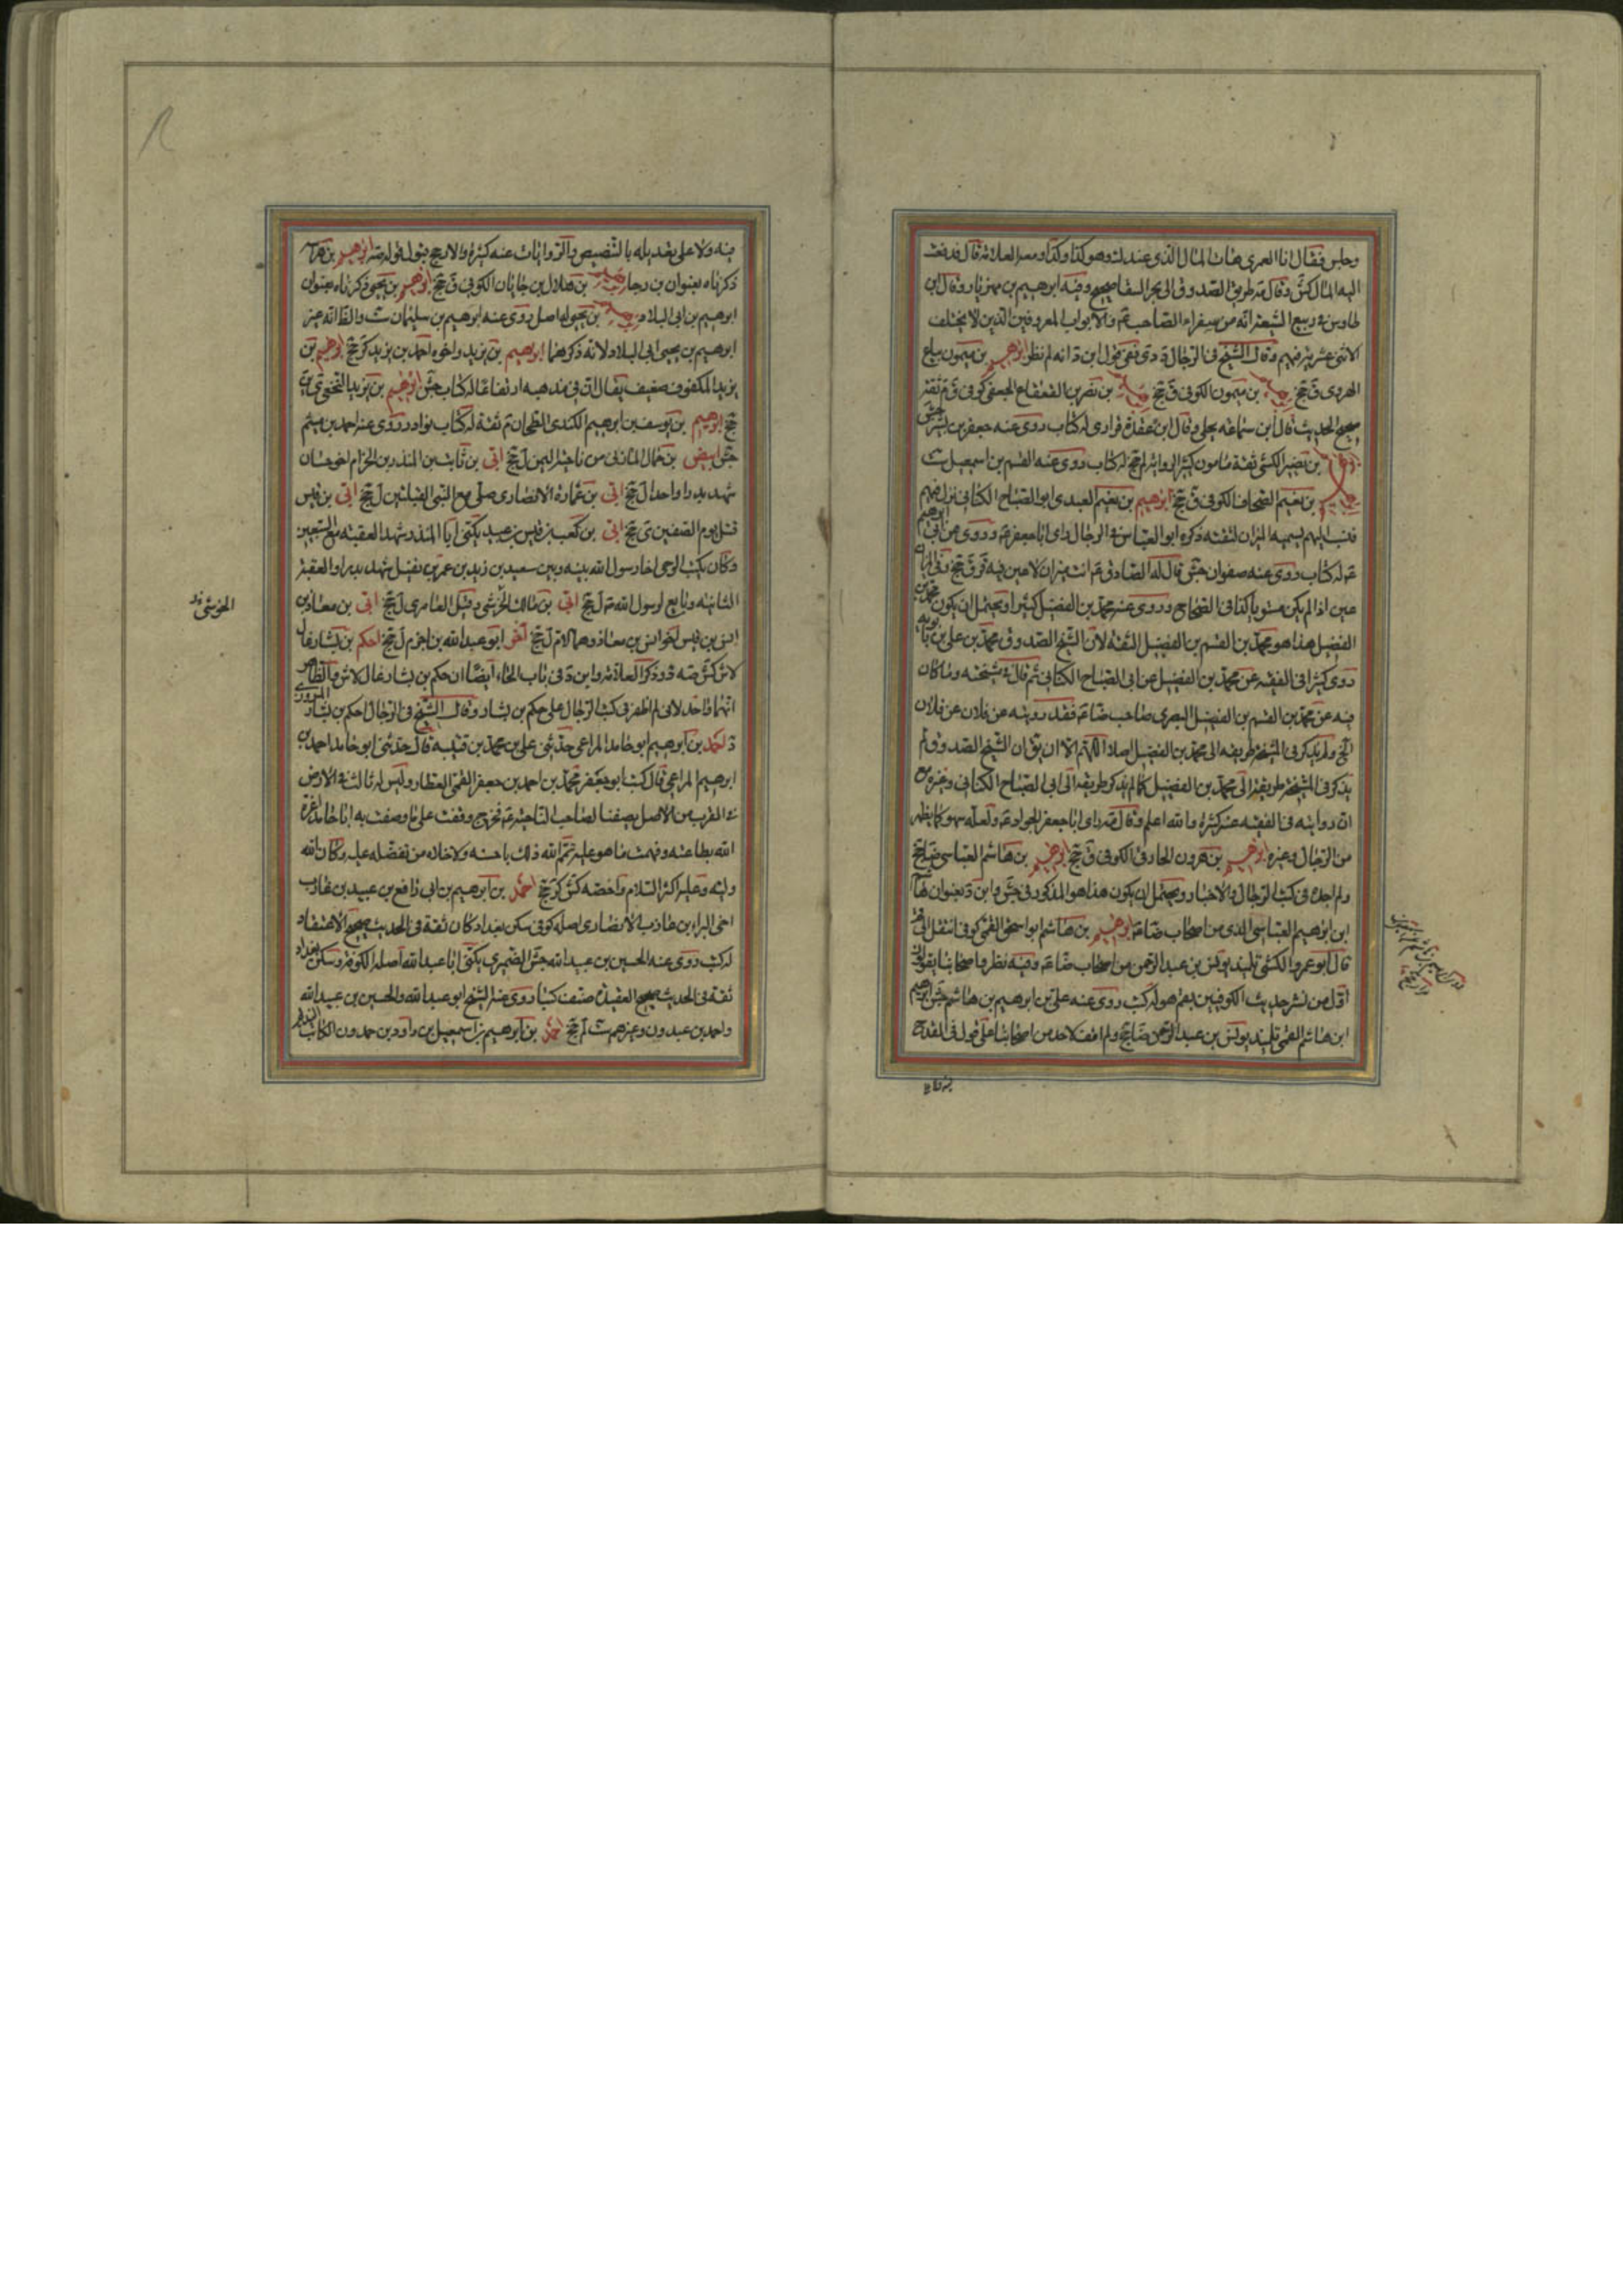 وجلس فقال انا العمرى هات المال الذى عندك وهو كذا وكذا ومعه العلامة قال فدفعت
اليه المال كش وقال مه طريق الصدوق الى بحر السقا صحيح وفيه ابرهيم بن مهزيار وقال ابن
طاوس فى ربيع الشيعة انه من سفراء الصاحب ع والابواب المعروفين الذين لا يختلف
الاثنى عشرية فيهم وقال الشيخ فى الرجال دى ففى قول ابن د انه لم نظر ابرهيم بن ميمون بياع
الهروى ق جخ ابرهيم بن ميمون الكوفى ق جخ ابرهيم بن نصر بن القعقاع الجعفى كوفى ق م ثقة
صحيح الحديث قال ابن سماعة بجلى وقال ابن عقدة فزارى له كتاب روى عنه جعفر بن بشير جش
بن نصير الكشى ثقة مامون كثير الرواية لم جخ له كتاب روى عنه القسم بن اسمعيل ست
ابرهيم بن نعيم الصحاف الكوفى ق جخ ابرهيم بن نعيم العبدى ابو الصباح الكنانى نزل فيهم
فنسب اليهم يسميه الميزان لثقته ذكره ابو العباس فى الرجال راى ابا جعفر ع وروى عن ابى ابرهيم
ع له كتاب روى عنه صفوان جش قال له الصادق ع انت ميزان لا عين فيه قر ق جخ وفى
عين اذا لم يكن مستويا كذا فى الصحاح وروى عنه محمد بن الفضيل كثيرا ويحتمل ان يكون محمد بن
الفضيل هذا هو محمد بن القسم بن الفضيل الثقة لان الشيخ الصدوق محمد بن على بن بابويه
روى كثيرا فى الفقيه عن محمد بن الفضيل عن ابى الصباح الكنانى ثم قال فى مشيخته وما كان
فيه عن محمد بن القسم بن الفضيل البصرى صاحب ضا ع فقد رويته عن فلان عن فلان
الخ ولم يذكر فى المشيخة طريقه الى محمد بن الفضيل اصلا اللهم الا ان يق ان الشيخ الصدوق لم
يذكر فى المشيخة طريقه الى محمد بن الفضيل كما لم يذكر طريقه الى ابى الصباح الكنانى وغيره مع
ان روايته فى الفقيه عنه كثيرة والله اعلم وقال مه راى ابا جعفر الجواد ع ولعله سهو كما يظهر
من الرجال وغيره ابرهيم بن هرون الخارفى الكوفى ق جخ ابرهيم بن هاشم العباسى ضا جخ
ولم اجده فى كتب الرجال والاخبار ويحتمل ان يكون هذا هو المذكور فى جش وابن د بعنوان هاشم
ابن ابرهيم العباسى الذى من اصحاب ضا ع ابرهيم بن هاشم ابو اسحق القمى كوفى انتقل الى قم
قال ابو عمرو الكشى تلميذ يونس بن عبد الرحمن من اصحاب ضا ع وفيه نظر واصحابنا يقولون
اول من نشر حديث الكوفيين بقم هو له كتب روى عنه على بن ابرهيم بن هاشم جش ابرهيم
ابن هاشم القمى تلميذ يونس بن عبد الرحمن ضا جخ ولم اقف لاحد من اصحابنا على قول فى القدح
فيه ولا
فيه ولا على تعديله بالتنصيص والروايات عنه كثيرة والارجح قبول قوله مه ابرهيم بن هراسه
ذكرناه بعنوان بن رجا ابرهيم بن هلال بن جابان الكوفى ق جخ ابرهيم بن يحيى ذكرناه بعنوان
ابرهيم بن ابى البلاد ابرهيم بن يحيى له اصل روى عنه ابرهيم بن سليمان ست والظ انه غير
ابرهيم بن يحيى ابى البلاد لانه ذكرهما ابرهيم بن يزيد واخوه احمد بن يزيد كر جخ ابرهيم بن
يزيد المكفوف ضعيف يقال ان فى مذهبه ارتفاعا له كتاب جش ابرهيم بن يزيد النخعى ى ين
جخ ابرهيم بن يوسف بن ابرهيم الكندى الطحان م ثقة له كتاب نوادر روى عنه احمد بن ميثم
جش ابيض بن حمال المازنى من ناحية اليمن ل جخ ابى بن ثابت بن المنذر بن الحزام اخو حسان
شهد بدرا واحدا ل جخ ابى بن عمارة الانصارى صلى مع النبى القبلتين ل جخ ابى بن قيس
قتل يوم الصفين ى جخ ابى بن كعب بن قيس بن عبيد يكنى ابا المنذر شهد العقبة مع السبعين
وكان يكتب الوحى اخا رسول الله بينه وبين سعيد بن زيد بن عمرو بن نفيل شهد بدرا والعقبة
الثانية وبايع لرسول الله ص ل جخ ابى بن مالك الحرشى وقيل العامرى ل جخ ابى بن معاذ بن
انس بن قيس اخو انس بن معاذ وهما لام ل جخ اخر ابو عبد الله بن اخزم ل جخ احكم بن بشار غال
لاش كش صه د وذكر العلامة وابن د فى باب الحاء ايضا ان حكم بن بشار غال لاش والظاهر
انهما واحد لانى لم اظفر فى كتب الرجال على حكم بن بشار وقال الشيخ فى الرجال احكم بن بشار المروزى
د احمد بن ابرهيم ابو حامد المراغى حدثنى على بن محمد بن قتيبة قال حدثنى ابو حامد احمد بن
ابرهيم المراغى قال كتب ابو جعفر محمد بن احمد بن جعفر القمى العطار وليس له ثالث فى الارض
فى القرب من الاصل يصفنا لصاحب الناحية ع فخرج وقفت على ما وصفت به ابا حامد اعزه
الله بطاعته وفهمت ما هو عليه تمم الله ذلك باحسنه ولا اخلاه من تفضله عليه وكان الله
وليه وعليه اكثر السلام واخصه كش كر جخ احمد بن ابرهيم بن ابى رافع بن عبيد بن عازب
اخى البراء بن عازب الانصارى اصله كوفى سكن بغداد كان ثقة فى الحديث صحيح الاعتقاد
له كتب روى عنه الحسين بن عبيد الله جش الصيمرى يكنى ابا عبد الله اصله الكوفة وسكن بغداد
ثقة فى الحديث صحيح العقيدة صنف كتبا روى عنه الشيخ ابو عبد الله والحسين بن عبيد الله
واحمد بن عبدون وغيرهم ست لم جخ احمد بن ابرهيم بن اسمعيل بن داود بن حمدون الكاتب النديم
الحرشى